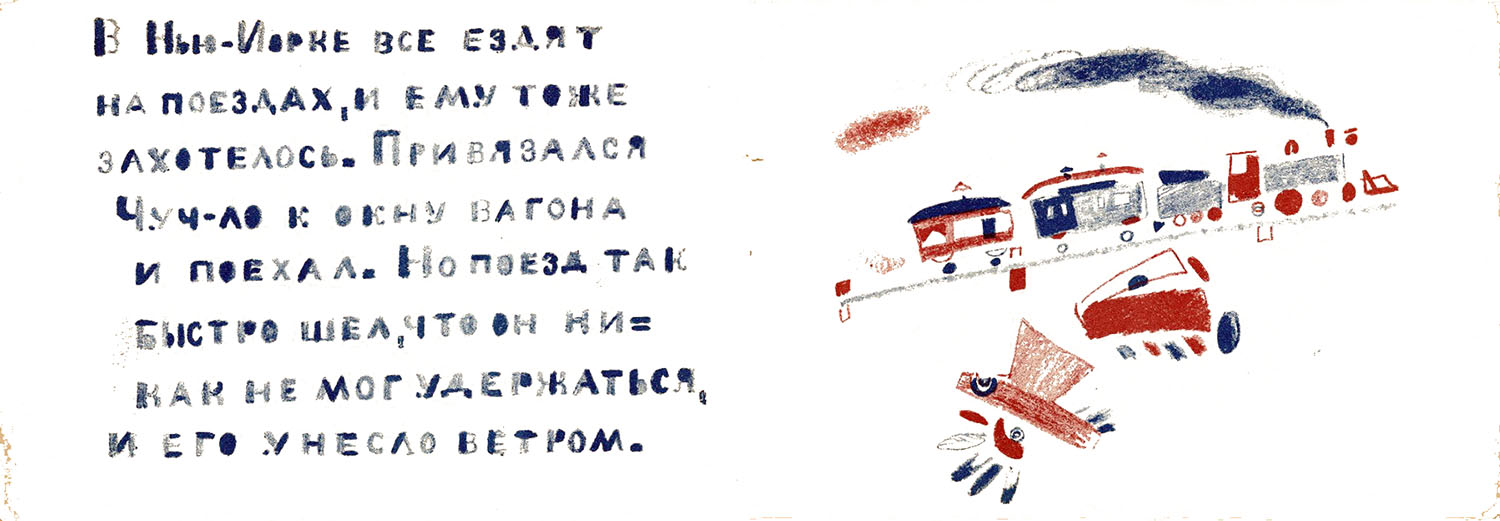 В Нью-Иорке все ездят
на поездах, и ему тоже
захотелось. Привязался
Чуч-ло к окну вагона
и поехал. Но поезд так
быстро шел, что он ни=
как не мог удержаться,
и его унесло ветром.